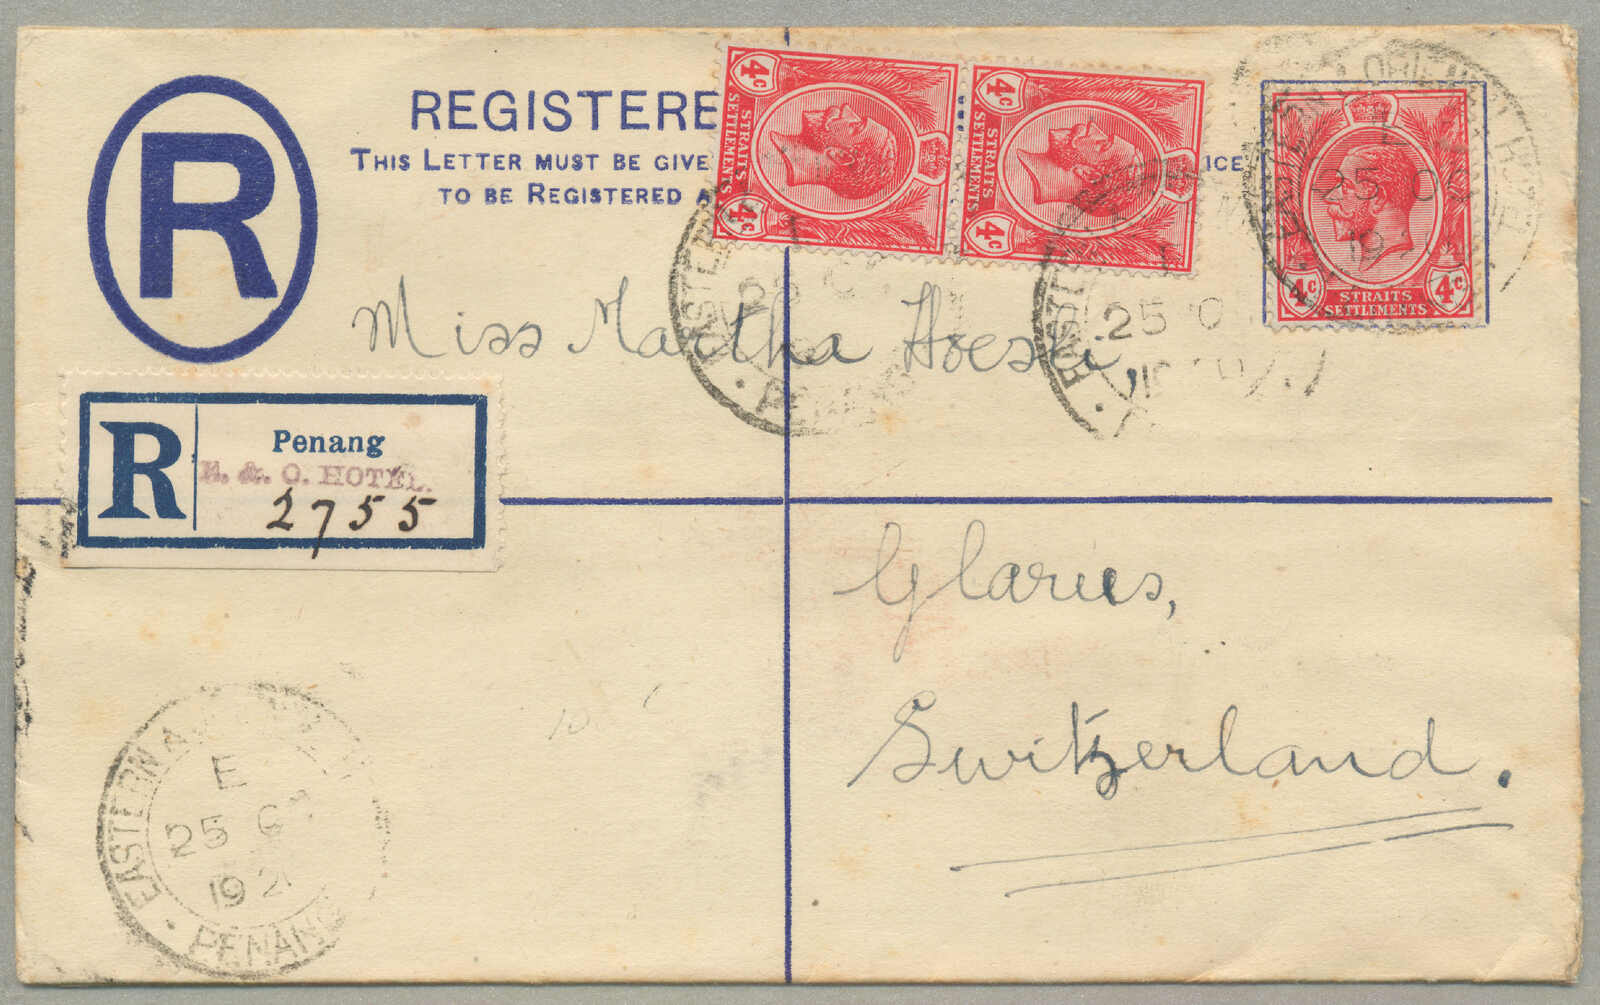 R
REGISTERE
THIS LETTER MUST BE GIVE ICE
TO BE REGISTERED
4c 4c
STRAITS
SETTLEMENTS
4c 4c
STRAITS
SETTLEMENTS
4c STRAITS 4c
SETTLEMENTS
25 OC
19
25 O
PENANG
Miss Martha Hoesli,
R
Penang
E. & O. HOTEL.
2755
Glarus,
Switzerland.
EASTERN
E
25 OC
192
PENANG